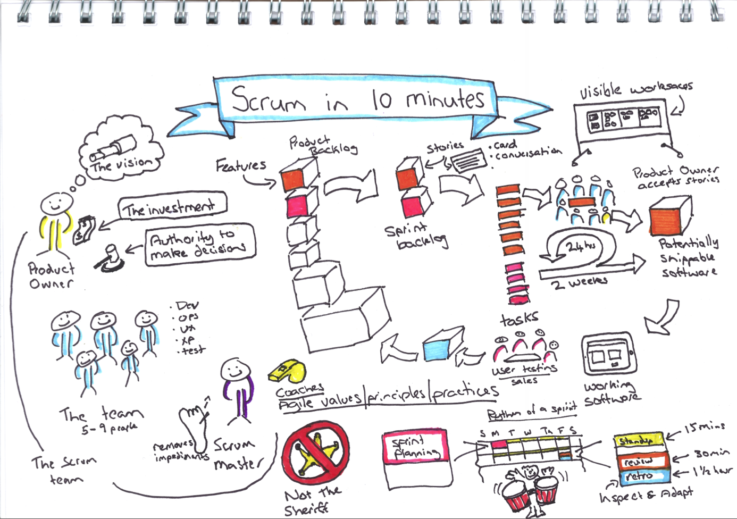 Scrum in 10 minutes
The vision
The investment
Authority to
make decisions
Product
Owner
Features
Product
Backlog
stories
• card
• conversation
Sprint
backlog
visible workspaces
Product Owner
accepts stories
24hr
2 weeks
Potentially
shippable
software
tasks
user testing
sales
working
software
• Dev
• ops
• UX
• XP
• test
The team
5-9 people
removes
impediments
Scrum
master
The Scrum
team
Coaches
Agile values/principles/practices
Not The
Sheriff
Rythm of a sprint
S M T W Th F S
sprint
planning
standup
review
retro
15 mins
30 min
1 1/2 hour
Inspect & Adapt